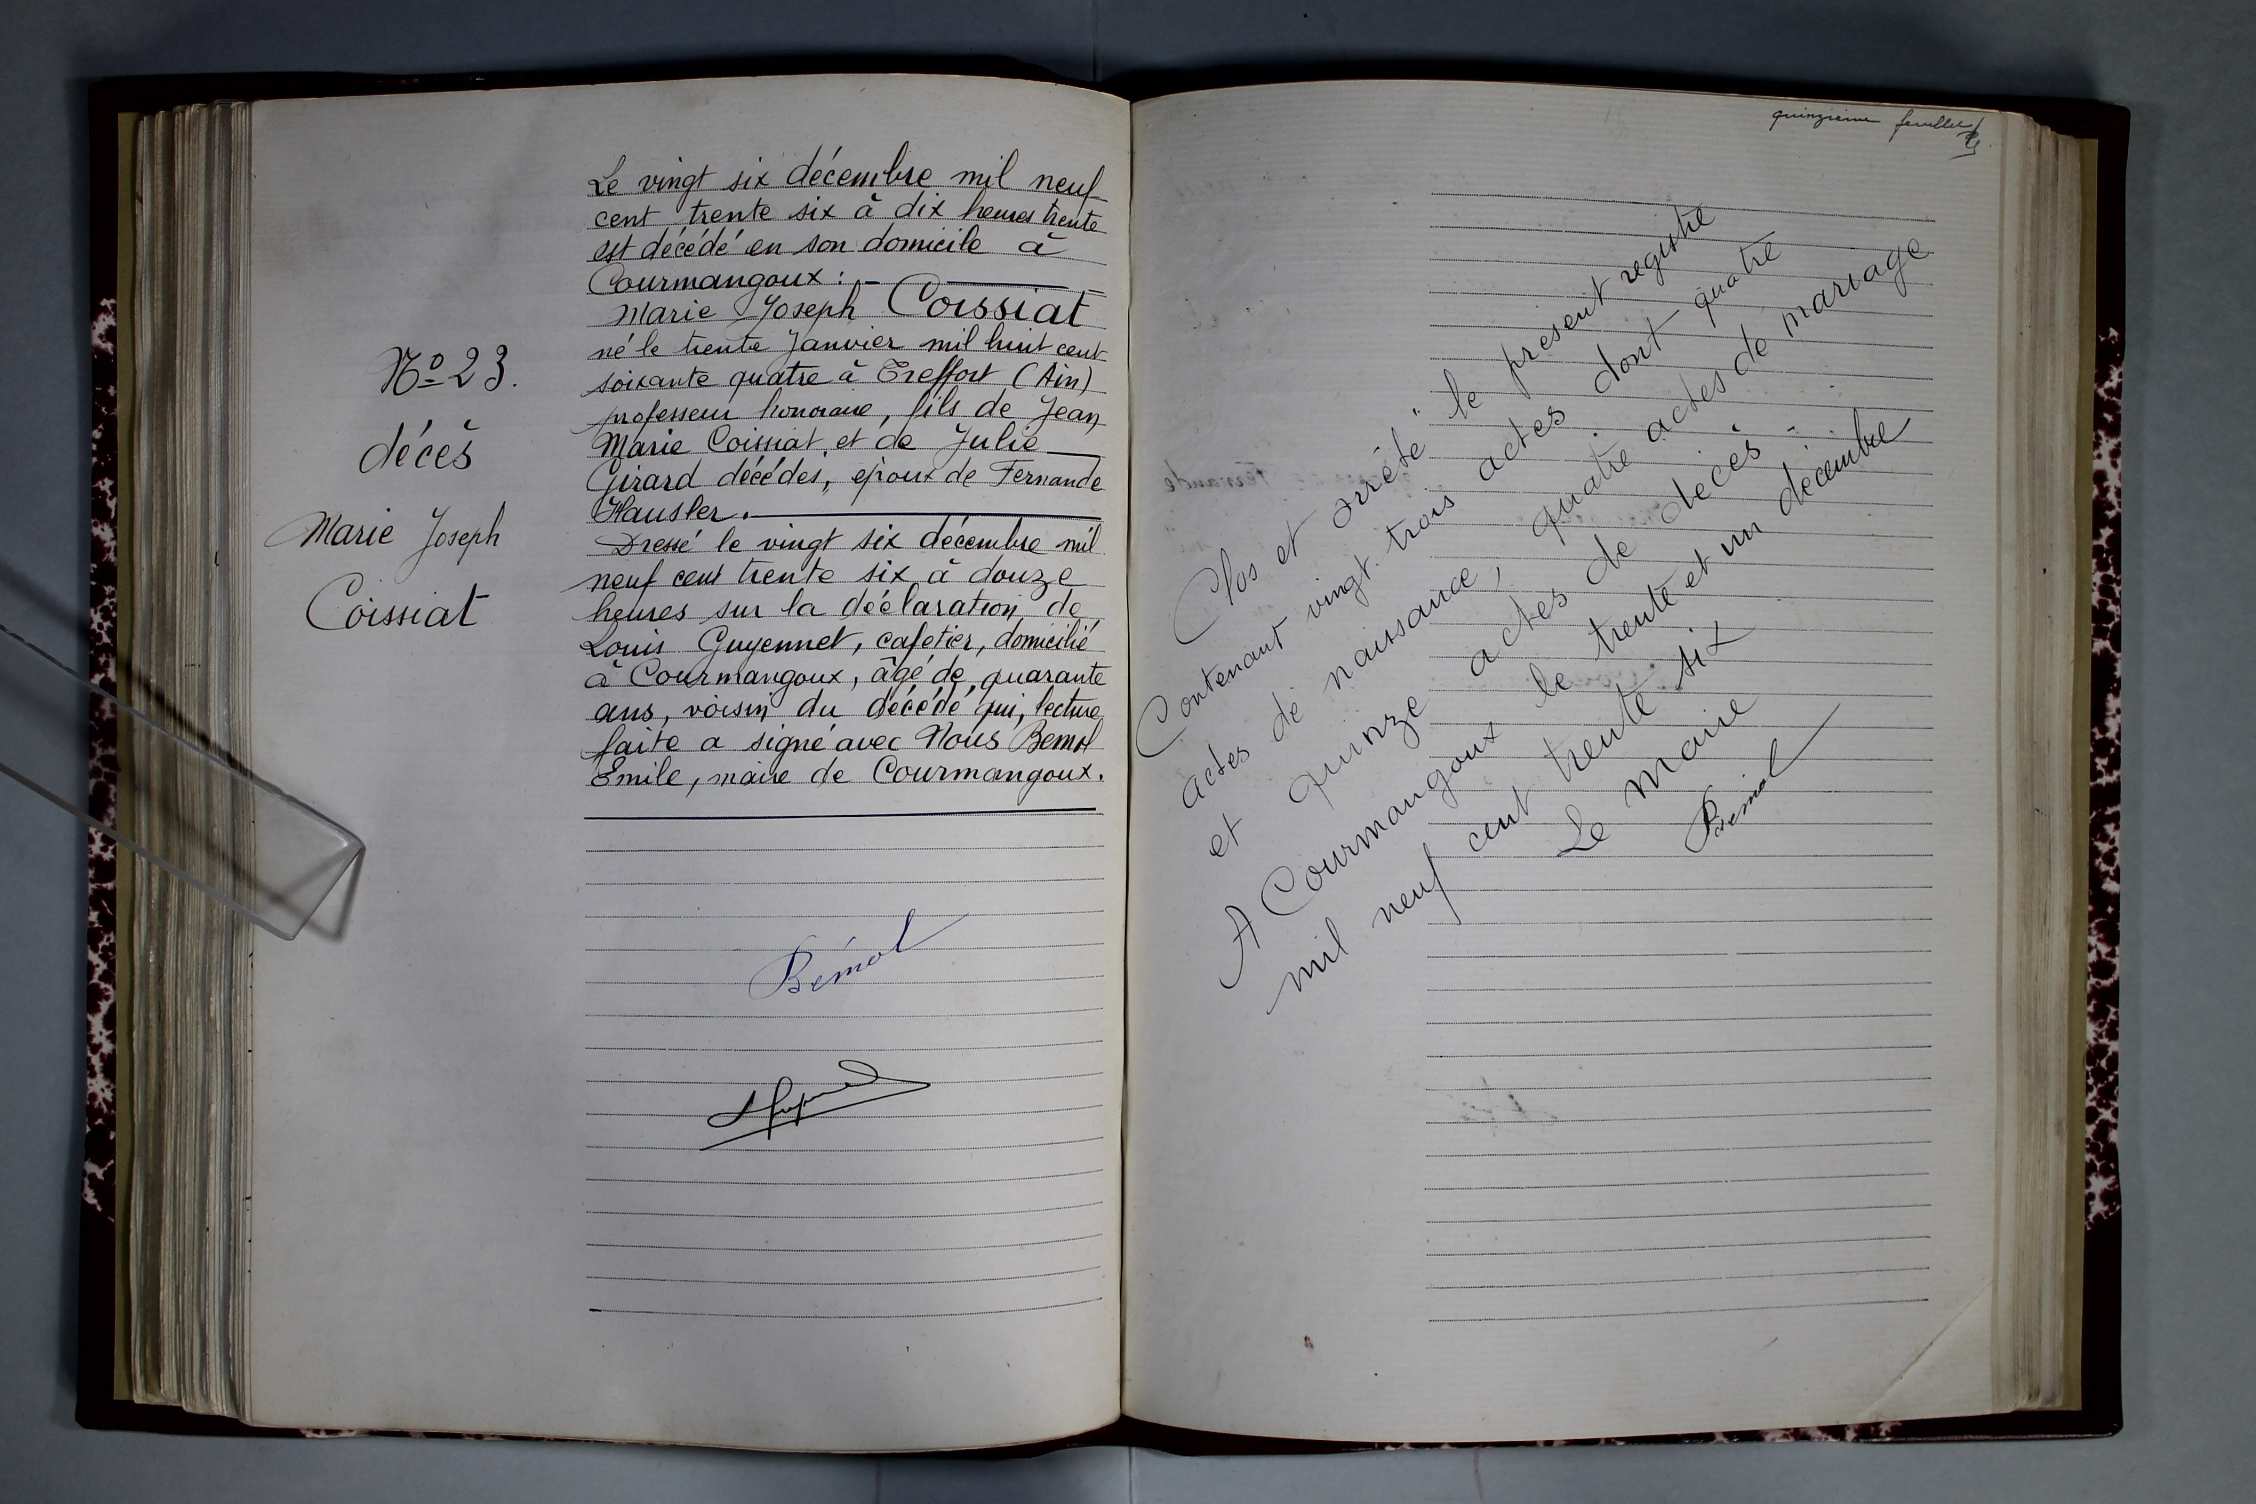 N° 23.
décès
Marie Joseph
Coissiat
Le vingt six décembre mil neuf
cent trente six à dix heures trente
est décédé en son domicile à
Courmangoux : —
Marie Joseph Coissiat
né le trente Janvier mil huit cent
soixante quatre à Treffort (Ain)
professeur honoraire, fils de Jean
Marie Coissiat, et de Julie
Girard décédés, époux de Fernande
Hausler.
Dressé le vingt six décembre mil
neuf cent trente six à douze
heures sur la déclaration de
Louis Guyennet, cafetier, domicilié
à Courmangoux, âgé de quarante
ans, voisin du décédé qui, lecture
faite a signé avec Nous Bemol
Emile, maire de Courmangoux.
Bémol
quinzième feuillet
Clos et arrêté le présent registre
Contenant vingt-trois actes dont quatre
actes de naissance, quatre actes de mariage
et quinze actes de décès -
A Courmangoux le trente et un décembre
mil neuf cent trente six
Le Maire
Bémol